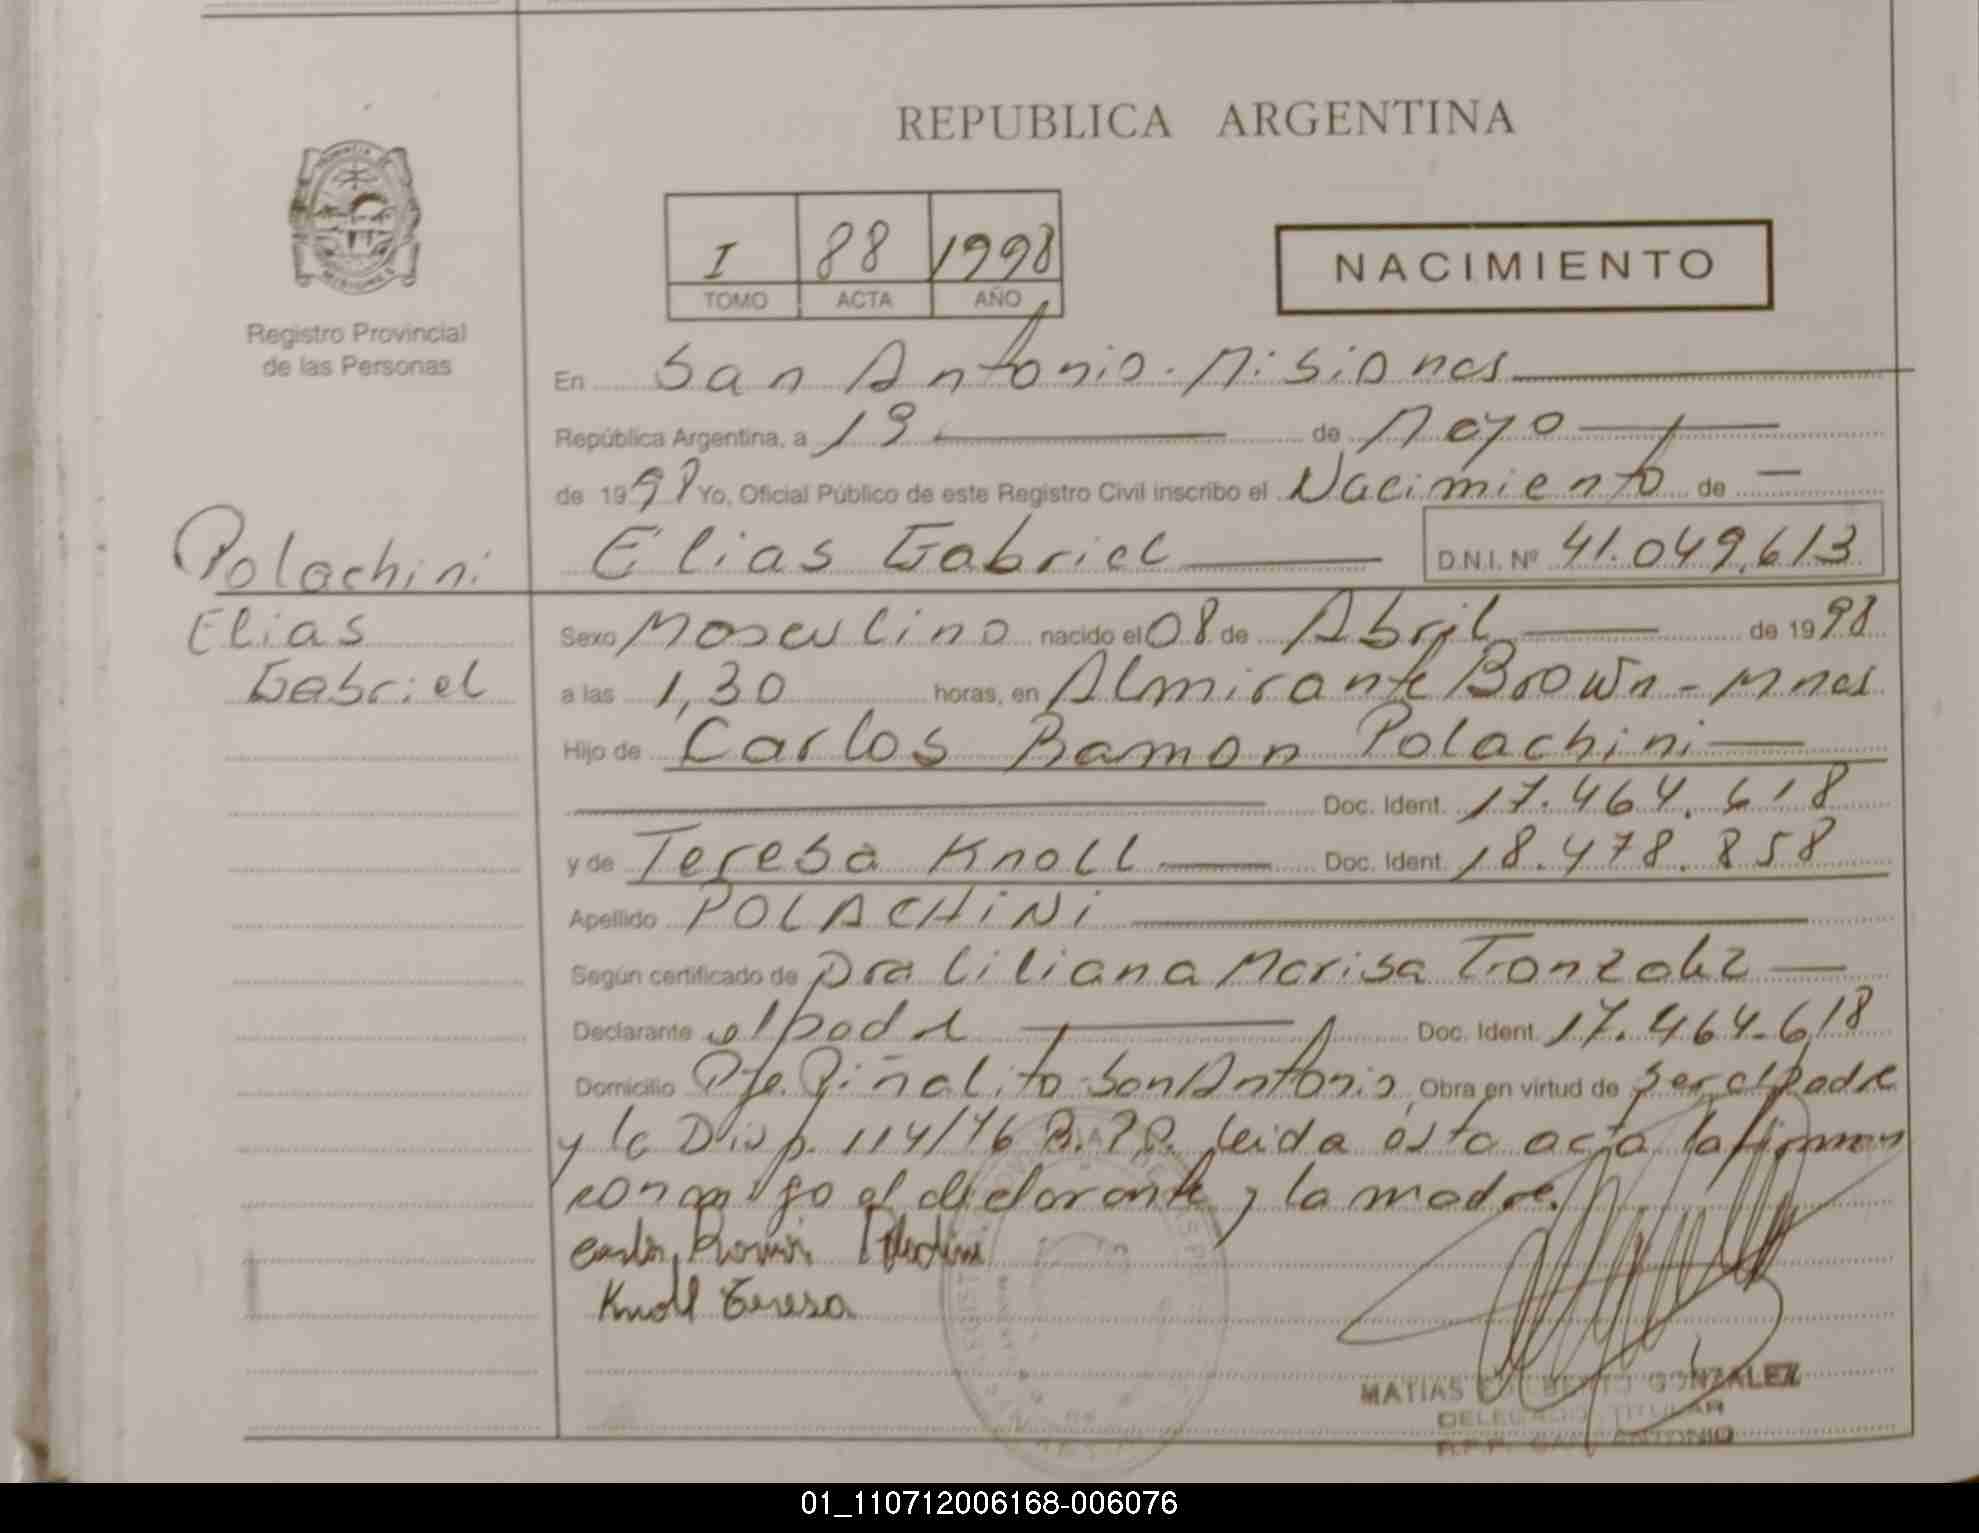 REPUBLICA ARGENTINA
I 88 1998
TOMO ACTA AÑO
NACIMIENTO
Registro Provincial
de las Personas
En San Antonio. Misiones
República Argentina, a 19 de Mayo
de 1998 Yo, Oficial Público de este Registro Civil inscribo el Nacimiento de
Polachini
Elias
Gabriel
Elias Gabriel D.N.I. Nº 41.049.613
Sexo Masculino nacido el 08 de Abril de 1998
a las 1,30 horas, en Almirante Brown - Mnes
Hijo de Carlos Ramon Polachini
Doc. Ident. 17.464.618
y de Teresa Knoll Doc. Ident. 18.478.858
Apellido POLACHINI
Según certificado de Dra Liliana Marisa Gonzalez
Declarante el padre Doc. Ident. 17.464.618
Domicilio Pje. Piñalito San Antonio, Obra en virtud de ser el padre
y la Disp. 114/76 leida esta acta la firman
conmigo el declarante y la madre.
Carlos Ramón Polachini
Knoll Teresa
MATIAS GONZALEZ
DELEGADO TITULAR
R.P.P. SAN ANTONIO
01_110712006168-006076